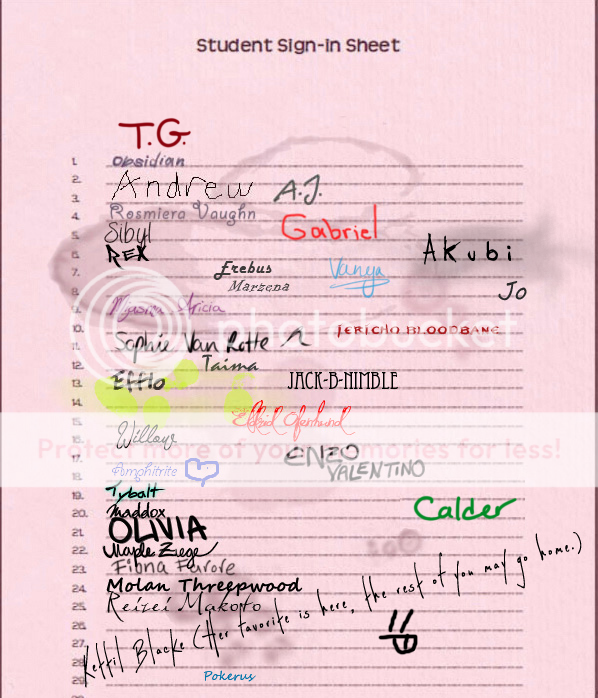 Student Sign-In Sheet
T.G.
1. Obsidian
2.
Andrew A.J.
3.
4. Rosmiera Vaughn Gabriel
5. Sibyl
6. REX Akubi
7. Erebus Vanya
8. Marzena Jo
9.
10. JERICHO BLOODBANE
11. Sophie Van Rotte
12. Taima
13. Efflo JACK-B-NIMBLE
14.
15.
photobucket
Protect more of your memories for less!
16. Willow
17. ENZO
VALENTINO
18. Amphitrite
19. Tybalt
20. Maddox Calder
21. OLIVIA
22. Maple Ziege
23. Fiona Farore
24. Molan Threepwood
25. Reizei Makoto
26.
27. Kettil Blacke (Her favorite is here, the rest of you may go home.)
28.
29. Pokerus